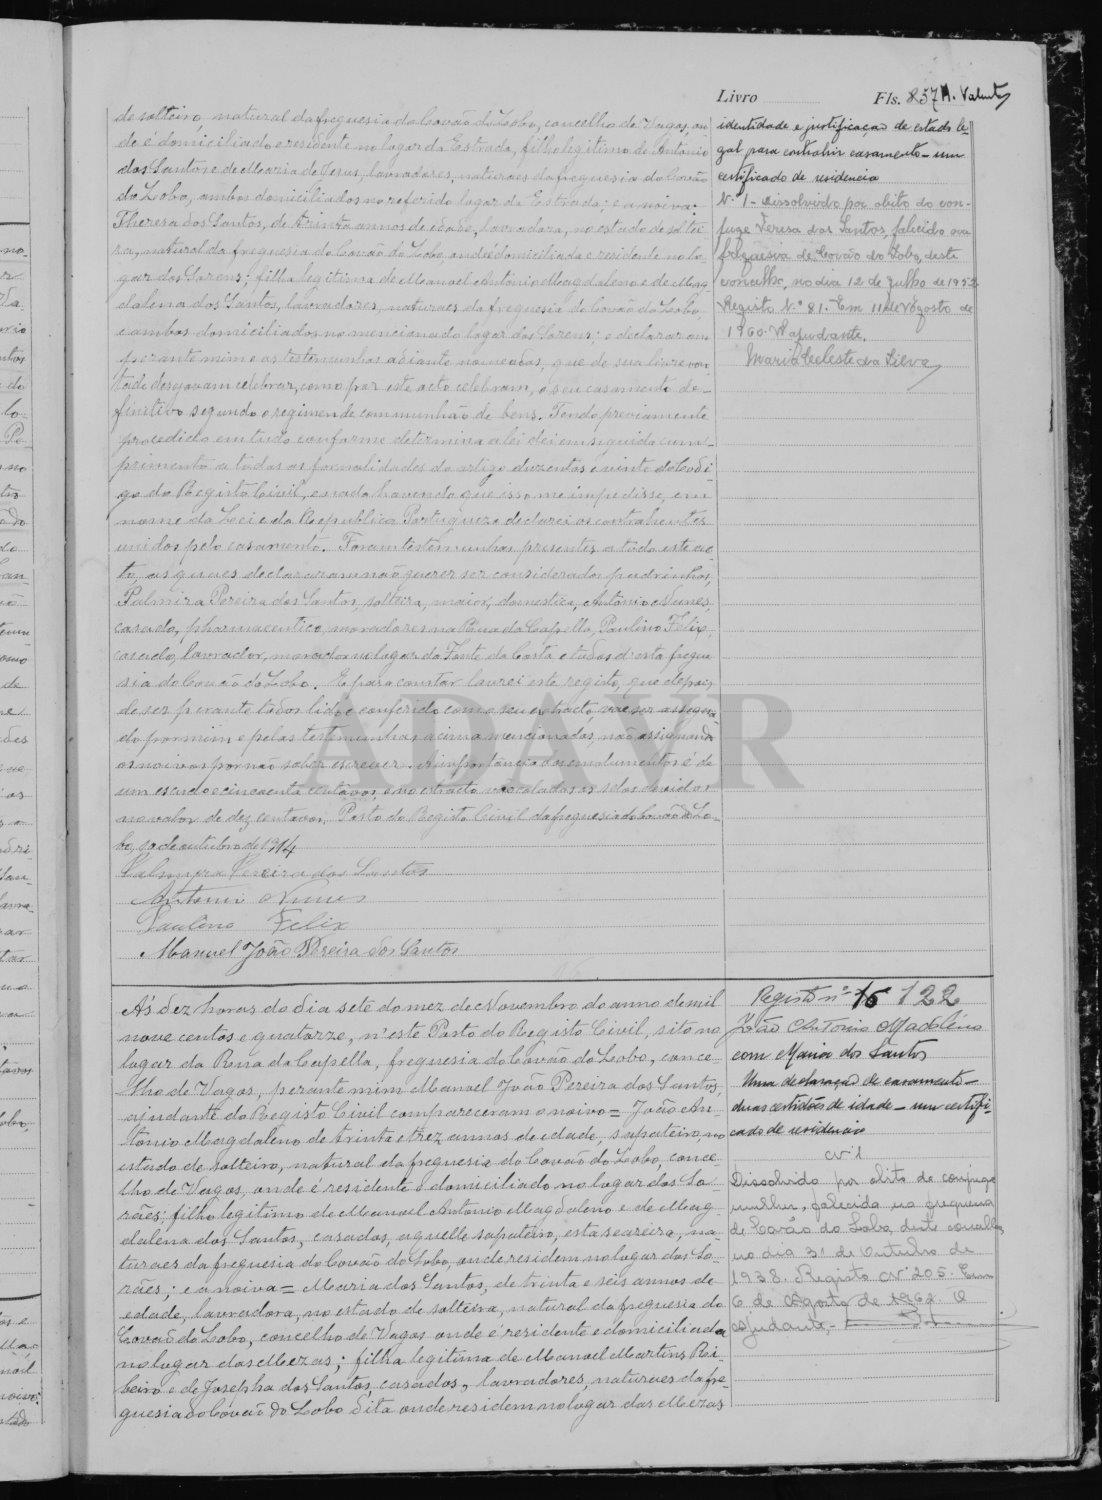 Livro Fls. 857 A. Valente
de solteiro natural da freguesia do Covão do Lobo, concelho de Vagos, on-
de é domiciliado e residente no logar da Estrada, filho legitimo de Antonio
dos Santos e de Maria de Jesus, lavradores, naturaes da freguesia do Covão
do Lobo, ambos domiciliados no referido logar da Estrada; e a noiva:
Theresa dos Santos, de trinta annos de edade, lavradora, no estado de soltei-
ra, natural da freguesia do Covão do Lobo, onde é domiciliada e residente no lo-
gar dos Sorens; filha legitima de Manoel Antonio Magdaleno e de Mag-
dalena dos Santos, lavradores, naturaes da freguesia do Covão do Lobo
e ambos domiciliados no mencionado logar dos Sorens; e declararam
perante mim e as testemunhas adiante nomeadas, que de sua livre von-
tade desejavam celebrar, como por este acto celebram, o seu casamento de-
finitivo segundo o regimen de communhão de bens. Tendo previamente
procedido em tudo conforme determina a lei dei em seguida cum-
primento a todas as formalidades do artigo duzentos e vinte do Codi-
go do Registo Civil, e nada havendo que isso me impedisse, em
nome da Lei e da Republica Portugueza declarei os contrahentes
unidos pelo casamento. Foram testemunhas presentes a todo este ac-
to, as quaes declararam não querer ser considerados padrinhos,
Palmira Pereira dos Santos, solteira, maior, domestica, Antonio Nunes,
casado, pharmaceutico, moradores na Rua da Capella, Paulino Felix,
casado, lavrador, morador no logar da Fonte da Costa e todos d'esta fregue-
sia do Covão do Lobo. E para constar lavrei este registo, que depois
de ser perante todos lido e conferido com o seu extracto, vae ser assigna-
do por mim e pelas testemunhas acima mencionadas, não assignando
os noivos por não saber escrever. A importancia dos emolumentos é de
um escudo e cincoenta centavos, e no extracto vão colados os selos devidos
no valor de dez centavos. Posto do Registo Civil da freguesia do Covão do Lo-
bo, de outubro de 1914
Palmyra Pereira dos Santos
Antonio Nunes
Paulino Felix
Manuel João Pereira dos Santos
identidade e justificação de estado le-
gal para contrahir casamento - um
certificado de residencia
N.º 1 - Dissolvido por obito do con-
juge Teresa dos Santos, falecido na
freguesia de Covão do Lobo, deste
concelho, no dia 12 de Julho de 1952
Registo N.º 81. Em 11 de Agosto de
1960. O Ajudante,
Maria Celeste da Silva
ADAVR
A's dez horas do dia sete do mez de Novembro do anno de mil
nove centos e quatorze, n'este Posto do Registo Civil, sito no
logar da Rua da Capella, freguesia do Covão do Lobo, conce-
lho de Vagos, perante mim Manoel João Pereira dos Santos,
ajudante do Registo Civil compareceram o noivo = João An-
tonio Magdaleno de trinta e trez annos de edade, sapateiro, no
estado de solteiro, natural da freguesia do Covão do Lobo, conce-
lho de Vagos, onde é residente e domiciliado no logar dos Lo-
rães; filho legitimo de Manoel Antonio Magdaleno e de Mag-
dalena dos Santos, casados, aquelle sapateiro, esta seareira, na-
turaes da freguesia do Covão do Lobo, onde residem no logar dos Lo-
rães; e a noiva = Maria dos Santos, de trinta e seis annos de
edade, lavradora, no estado de solteira, natural da freguesia do
Covão do Lobo, concelho de Vagos onde é residente e domiciliada
no logar das Mezas; filha legitima de Manoel Martins Ri-
beiro e de Josepha dos Santos, casados, lavradores, naturaes da fre-
guesia do Covão do Lobo dita onde residem no logar das Mezas
Registo nº 16 122
João Antonio Madaleno
com Maria dos Santos
Uma declaração de casamento -
duas certidões de idade - um certifi-
cado de residencia
Nº 1
Dissolvido por obito do conjuge
mulher, falecida na freguesia
de Covão do Lobo, deste concelho,
no dia 31 de Outubro de
1938. Registo Nº 205. Em
6 de Agosto de 1962. O
Ajudante,